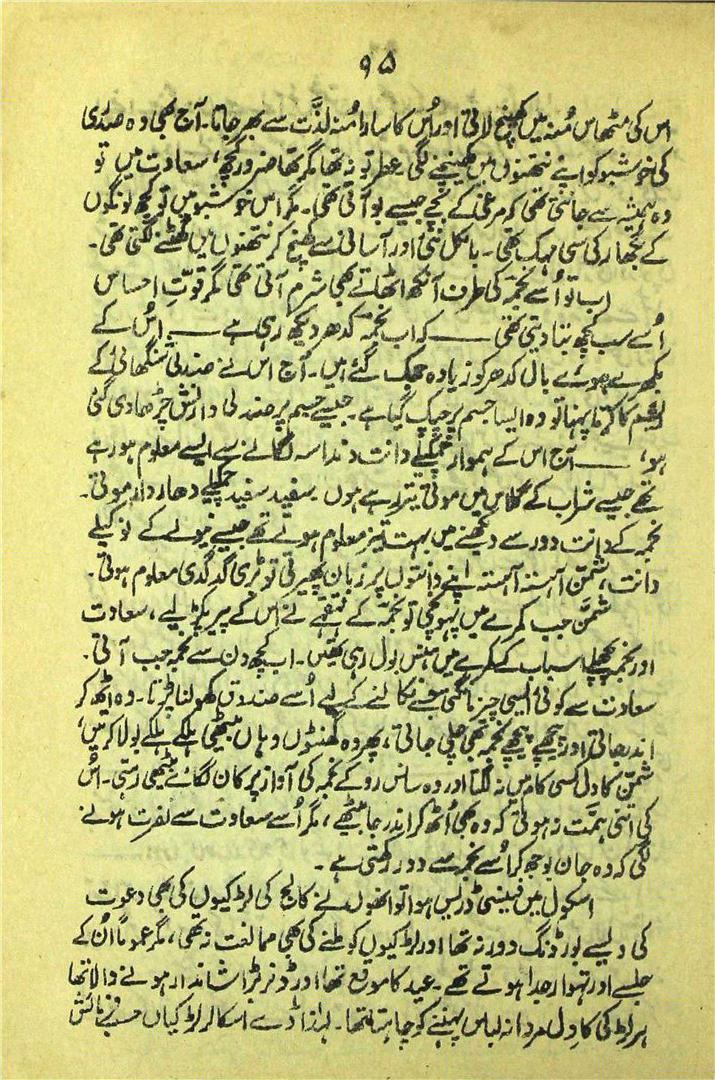 ۹۵
اس کی مٹھاس مُنہ میں کھینچ لاتی اور اُس کا سارا مُنہ لذّت سے بھر جاتا۔ آج بھی وہ صندلی
کی خوشبو کو اپنے نتھنوں میں کھینچنے لگی۔ عطر تو نہ تھا مگر تھا ضرور کچھ، سعادت میں تو
وہ ہمیشہ سے جانتی تھی کہ مرغی کے بچے جیسے بو آتی تھی۔ مگر اس خوشبو میں تو کچھ لونگوں
کے بگھار کی سی مہک تھی۔ بالکل نئی اور آسانی سے کھنچ کر نتھنوں میں گھٹنے لگتی تھی۔
اب تو اُسے نجمہ کی طرف آنکھ اٹھاتے بھی شرم آتی تھی مگر قوتِ احساس
اُسے سب کچھ بتا دیتی تھی ــــــ کہ اب نجمہ کدھر دیکھ رہی ہے ــــــ اِس کے
بکھرے ہوئے بال کدھر کو زیادہ جھک گئے ہیں۔ آج اس نے صندلی شنگھائی کے
ریشم کا کرتا پہنا تو وہ ایسا جسم پر چپک گیا ہے۔ جیسے جسم پر صندلی وارنش چڑھا دی گئی
ہو، ــــــ آج اس کے ہموار چمکیلے دانت دنداسہ لگانے سے ایسے معلوم ہو رہے
تھے جیسے شراب کے گلاس میں موتی تیر رہے ہوں۔ سفید سفید چمکیلے دھاردار موتی۔
نجمہ کے دانت دور سے دیکھنے میں بہت تیز معلوم ہوتے تھے جیسے نیولے کے نوکیلے
دانت، شمّن آہستہ آہستہ اپنے دانتوں پر زبان پھیرتی تو بڑی گدگدی معلوم ہوتی۔
شمّن جب کمرے میں پہونچی تو نجمہ کے قہقہے نے اس کے پیر پکڑ لیے، سعادت
اور نجمہ پچھلے اسباب کے کمرے میں ہنس بول رہی تھیں۔ اب کچھ دن سے نجمہ جب آتی۔
سعادت سے کوئی ایسی چیز مانگتی جسے نکالنے کے لیے اُسے صندوق کھولنا پڑتا۔ وہ اٹھ کر
اندر جاتی اور پیچھے پیچھے نجمہ بھی چلی جاتی، پھر وہ گھنٹوں وہاں بیٹھی ہلکے ہلکے بولا کرتیں،
شمّن کا دل کسی کام میں نہ لگتا اور وہ سانس روکے نجمہ کی آواز پر کان لگائے بیٹھی رہتی۔ اس
کی اتنی ہمّت نہ ہوتی کہ وہ بھی اُٹھ کر اندر جا بیٹھے، مگر اُسے سعادت سے نفرت ہونے
لگی کہ وہ جان بوجھ کر اُسے نجمہ سے دور رکھتی ہے۔
اسکول میں فینسی ڈریس ہوا تو انھوں نے کالج کی لڑکیوں کی بھی دعوت
کی ویسے بورڈنگ دور نہ تھا اور لڑکیوں کو ملنے کی بھی ممالغت نہ تھی، مگر عموماً اُن کے
جلسے اور تہوار جدا ہوتے تھے۔ عید کا موقع تھا اور ڈنر بڑا شاندار ہونے والا تھا
ہر لڑکی کا دل مردانہ لباس پہننے کو چاہتا تھا۔ لہٰذا ڈے اسکالر لڑکیاں حسب فرمائش